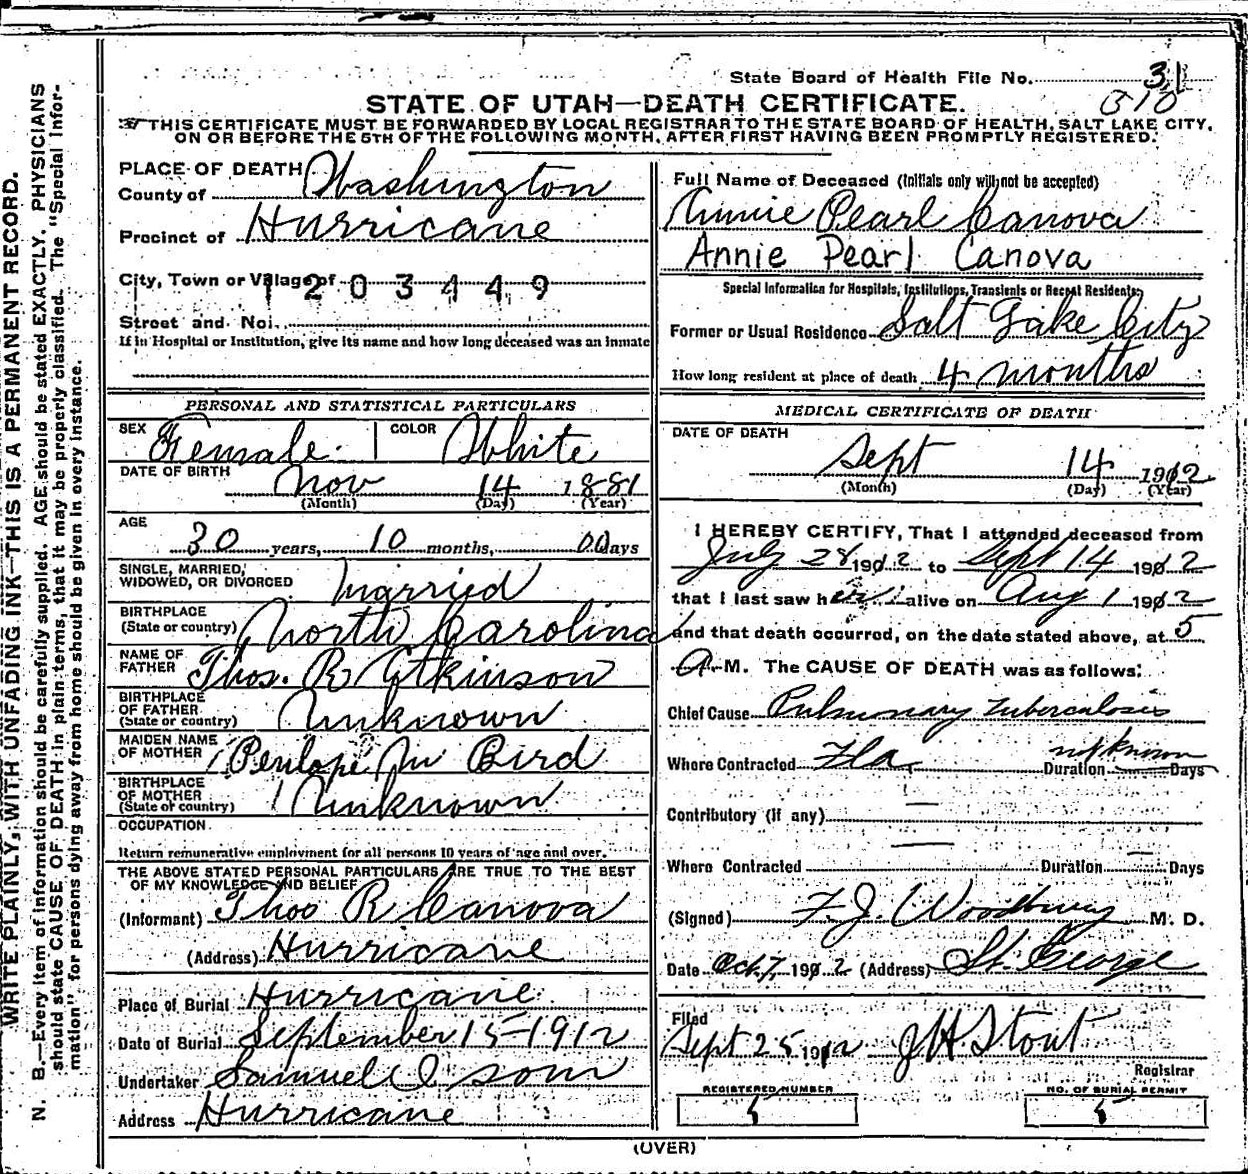 State Board of Health File No. 31
310
STATE OF UTAH—DEATH CERTIFICATE.
THIS CERTIFICATE MUST BE FORWARDED BY LOCAL REGISTRAR TO THE STATE BOARD OF HEALTH, SALT LAKE CITY,
ON OR BEFORE THE 5TH OF THE FOLLOWING MONTH, AFTER FIRST HAVING BEEN PROMPTLY REGISTERED.
WRITE PLAINLY, WITH UNFADING INK—THIS IS A PERMANENT RECORD.
N. B.—Every item of information should be carefully supplied. AGE should be stated EXACTLY. PHYSICIANS
should state CAUSE OF DEATH in plain terms, that it may be properly classified. The "Special Infor-
mation" for persons dying away from home should be given in every instance.
PLACE OF DEATH
County of Washington
Precinct of Hurricane
City, Town or Village of 1203449
Street and No.
If in Hospital or Institution, give its name and how long deceased was an inmate
PERSONAL AND STATISTICAL PARTICULARS
SEX Female COLOR White
DATE OF BIRTH Nov 14 1881
(Month) (Day) (Year)
AGE
30 years, 10 months, 0 Days
SINGLE, MARRIED,
WIDOWED, OR DIVORCED Married
BIRTHPLACE
(State or country) North Carolina
NAME OF
FATHER Thos. R Atkinson
BIRTHPLACE
OF FATHER
(State or country) Unknown
MAIDEN NAME
OF MOTHER Penlope M Bird
BIRTHPLACE
OF MOTHER
(State or country) Unknown
OCCUPATION
Return remunerative employment for all persons 10 years of age and over.
THE ABOVE STATED PERSONAL PARTICULARS ARE TRUE TO THE BEST
OF MY KNOWLEDGE AND BELIEF
(Informant) Thos R Canova
(Address) Hurricane
Place of Burial Hurricane
Date of Burial September 15-1912
Undertaker Samuel Isom
Address Hurricane
Full Name of Deceased (Initials only will not be accepted)
Annie Pearl Canova
Annie Pearl Canova
Special Information for Hospitals, Institutions, Transients or Recent Residents:
Former or Usual Residence Salt Lake City
How long resident at place of death 4 months
MEDICAL CERTIFICATE OF DEATH
DATE OF DEATH
Sept 14 1912
(Month) (Day) (Year)
I HEREBY CERTIFY, That I attended deceased from
July 28 1912 to Sept 14 1912
that I last saw her alive on Aug 1 1912
and that death occurred, on the date stated above, at 5
A M. The CAUSE OF DEATH was as follows:
Chief Cause Pulmonary Tuberculosis
Where Contracted Fla. Duration not known Days
Contributory (if any) —
Where Contracted — Duration — Days
(Signed) F. J. Woodbury M. D.
Date Oct 7, 1912 (Address) St. George
Filed
Sept 25 1912 J H Stout
Registrar
REGISTERED NUMBER NO. OF BURIAL PERMIT
5 5
(OVER)